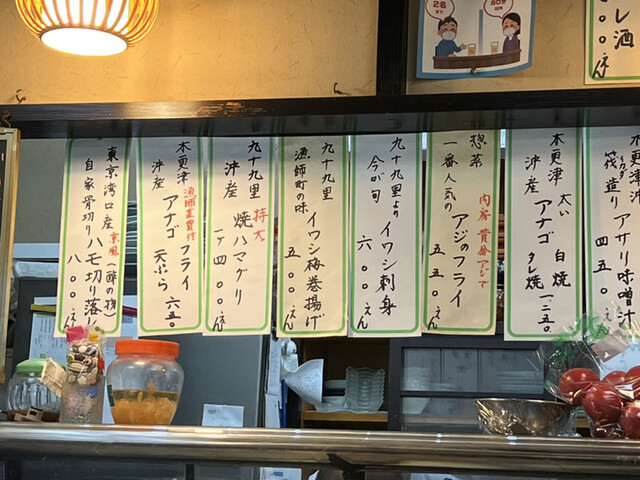 レ酒
〇〇〇えん
2名
まで
90分
以内
木更津
沖産
筏造り
イカダ
アサリ味噌汁
四五〇えん
木更津
沖産
太い
アナゴ
白焼
タレ焼
一二五〇
惣菜
一番人気の
内房 黄金アジで
アジのフライ
五五〇えん
九十九里より
今が旬
イワシ刺身
六〇〇えん
九十九里
漁師町の味
イワシ梅巻揚げ
五〇〇えん
九十九里
沖産
特大
焼ハマグリ
一ケ四〇〇えん
木更津
沖産
漁師直買付
アナゴ
フライ
天ぷら
六五〇
東京湾口産
京風(酢の物)
自家骨切り
ハモ切り落し
八〇〇えん